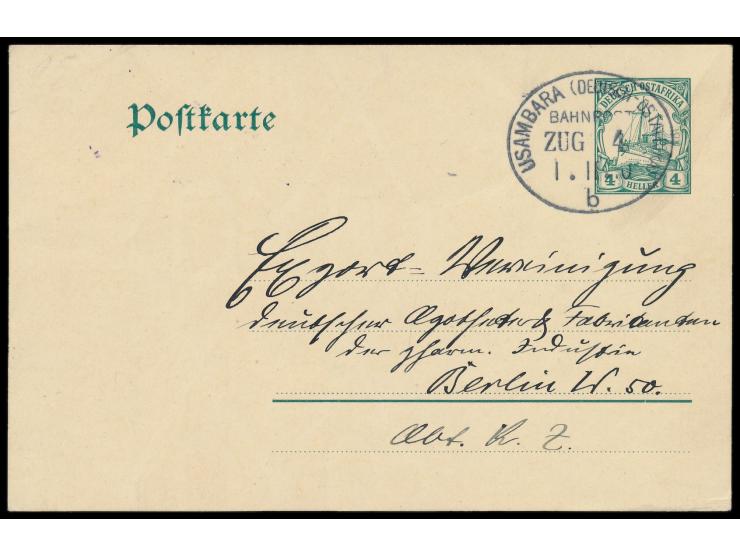 Postkarte
USAMBARA (DEUTSCH-OSTAFRIKA)
BAHNPOST
ZUG 4
b
DEUTSCH OSTAFRIKA
4 HELLER 4
Export-Vereinigung
deutscher Apotheker & Fabrikanten
der pharm. Industrie
Berlin W. 50.
Abt. K. Z.